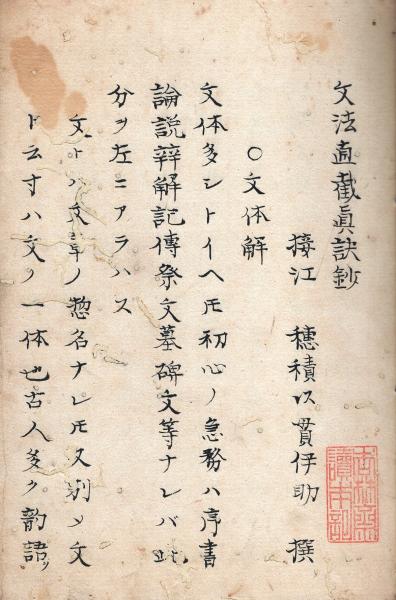 文法直截眞訣鈔
接江 穗積以貫伊助 撰
〇文体解
文体多シトイヘ𪜈初心ノ急務ハ序書
論説辨解記傳祭文墓碑文等ナレバ此
分ヲ左ニアラハス
文トハ文章ノ惣名ナレ𪜈又別メ文
ト云寸ハ文ノ一体也古人多ク韵語ヲ